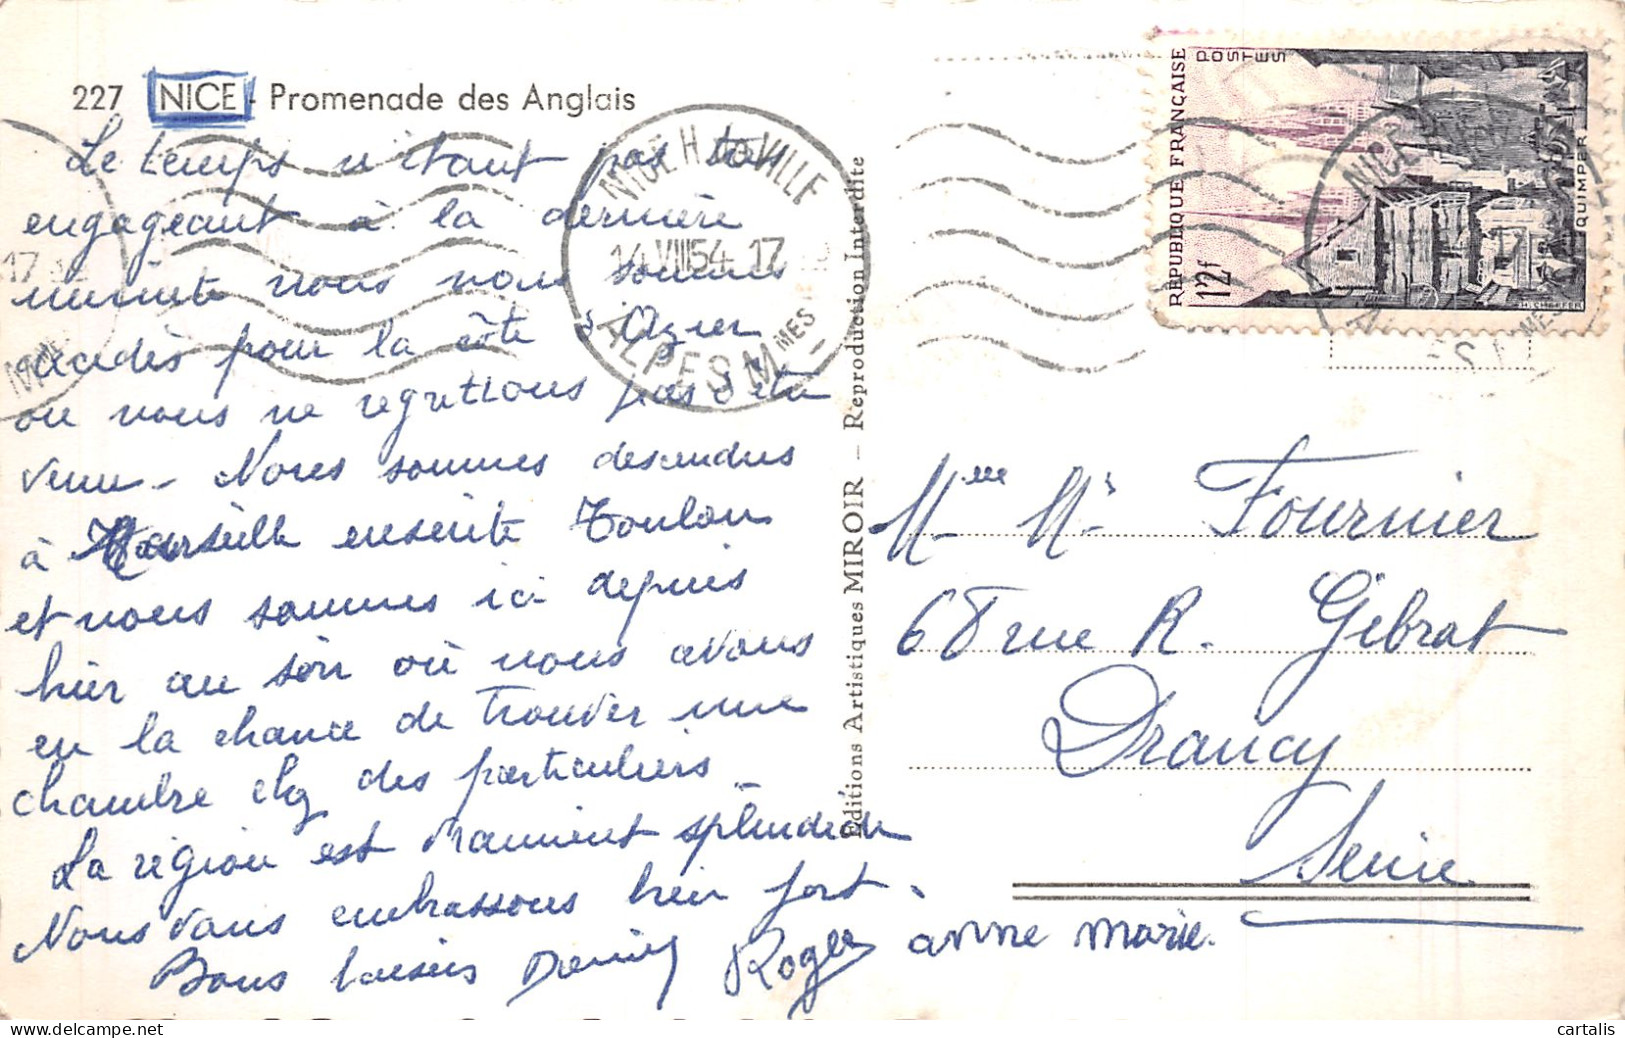 227 NICE - Promenade des Anglais
Le temps n'étant pas très
engageant à la dernière
minute nous nous sommes
décidés pour la côte d'Azur
ou nous ne regrettons pas d'être
venu - Nous sommes descendus
à Marseille ensuite Toulon
et nous sommes ici depuis
hier au soir où nous avons
eu la chance de trouver une
chambre chez des particuliers -
La région est vraiment splendide
Nous vous embrassons bien fort.
Bons baisers Roger anne marie.
Editions Artistiques MIROIR - Reproduction Interdite
NICE H. DE VILLE
14 VIII 54 17
ALPES MMES
17
NICE
MES
REPUBLIQUE FRANÇAISE
POSTES
12f
QUIMPER
Mme Mr Fournier
68 rue R. Gibrat
Drancy
Seine
cartalis